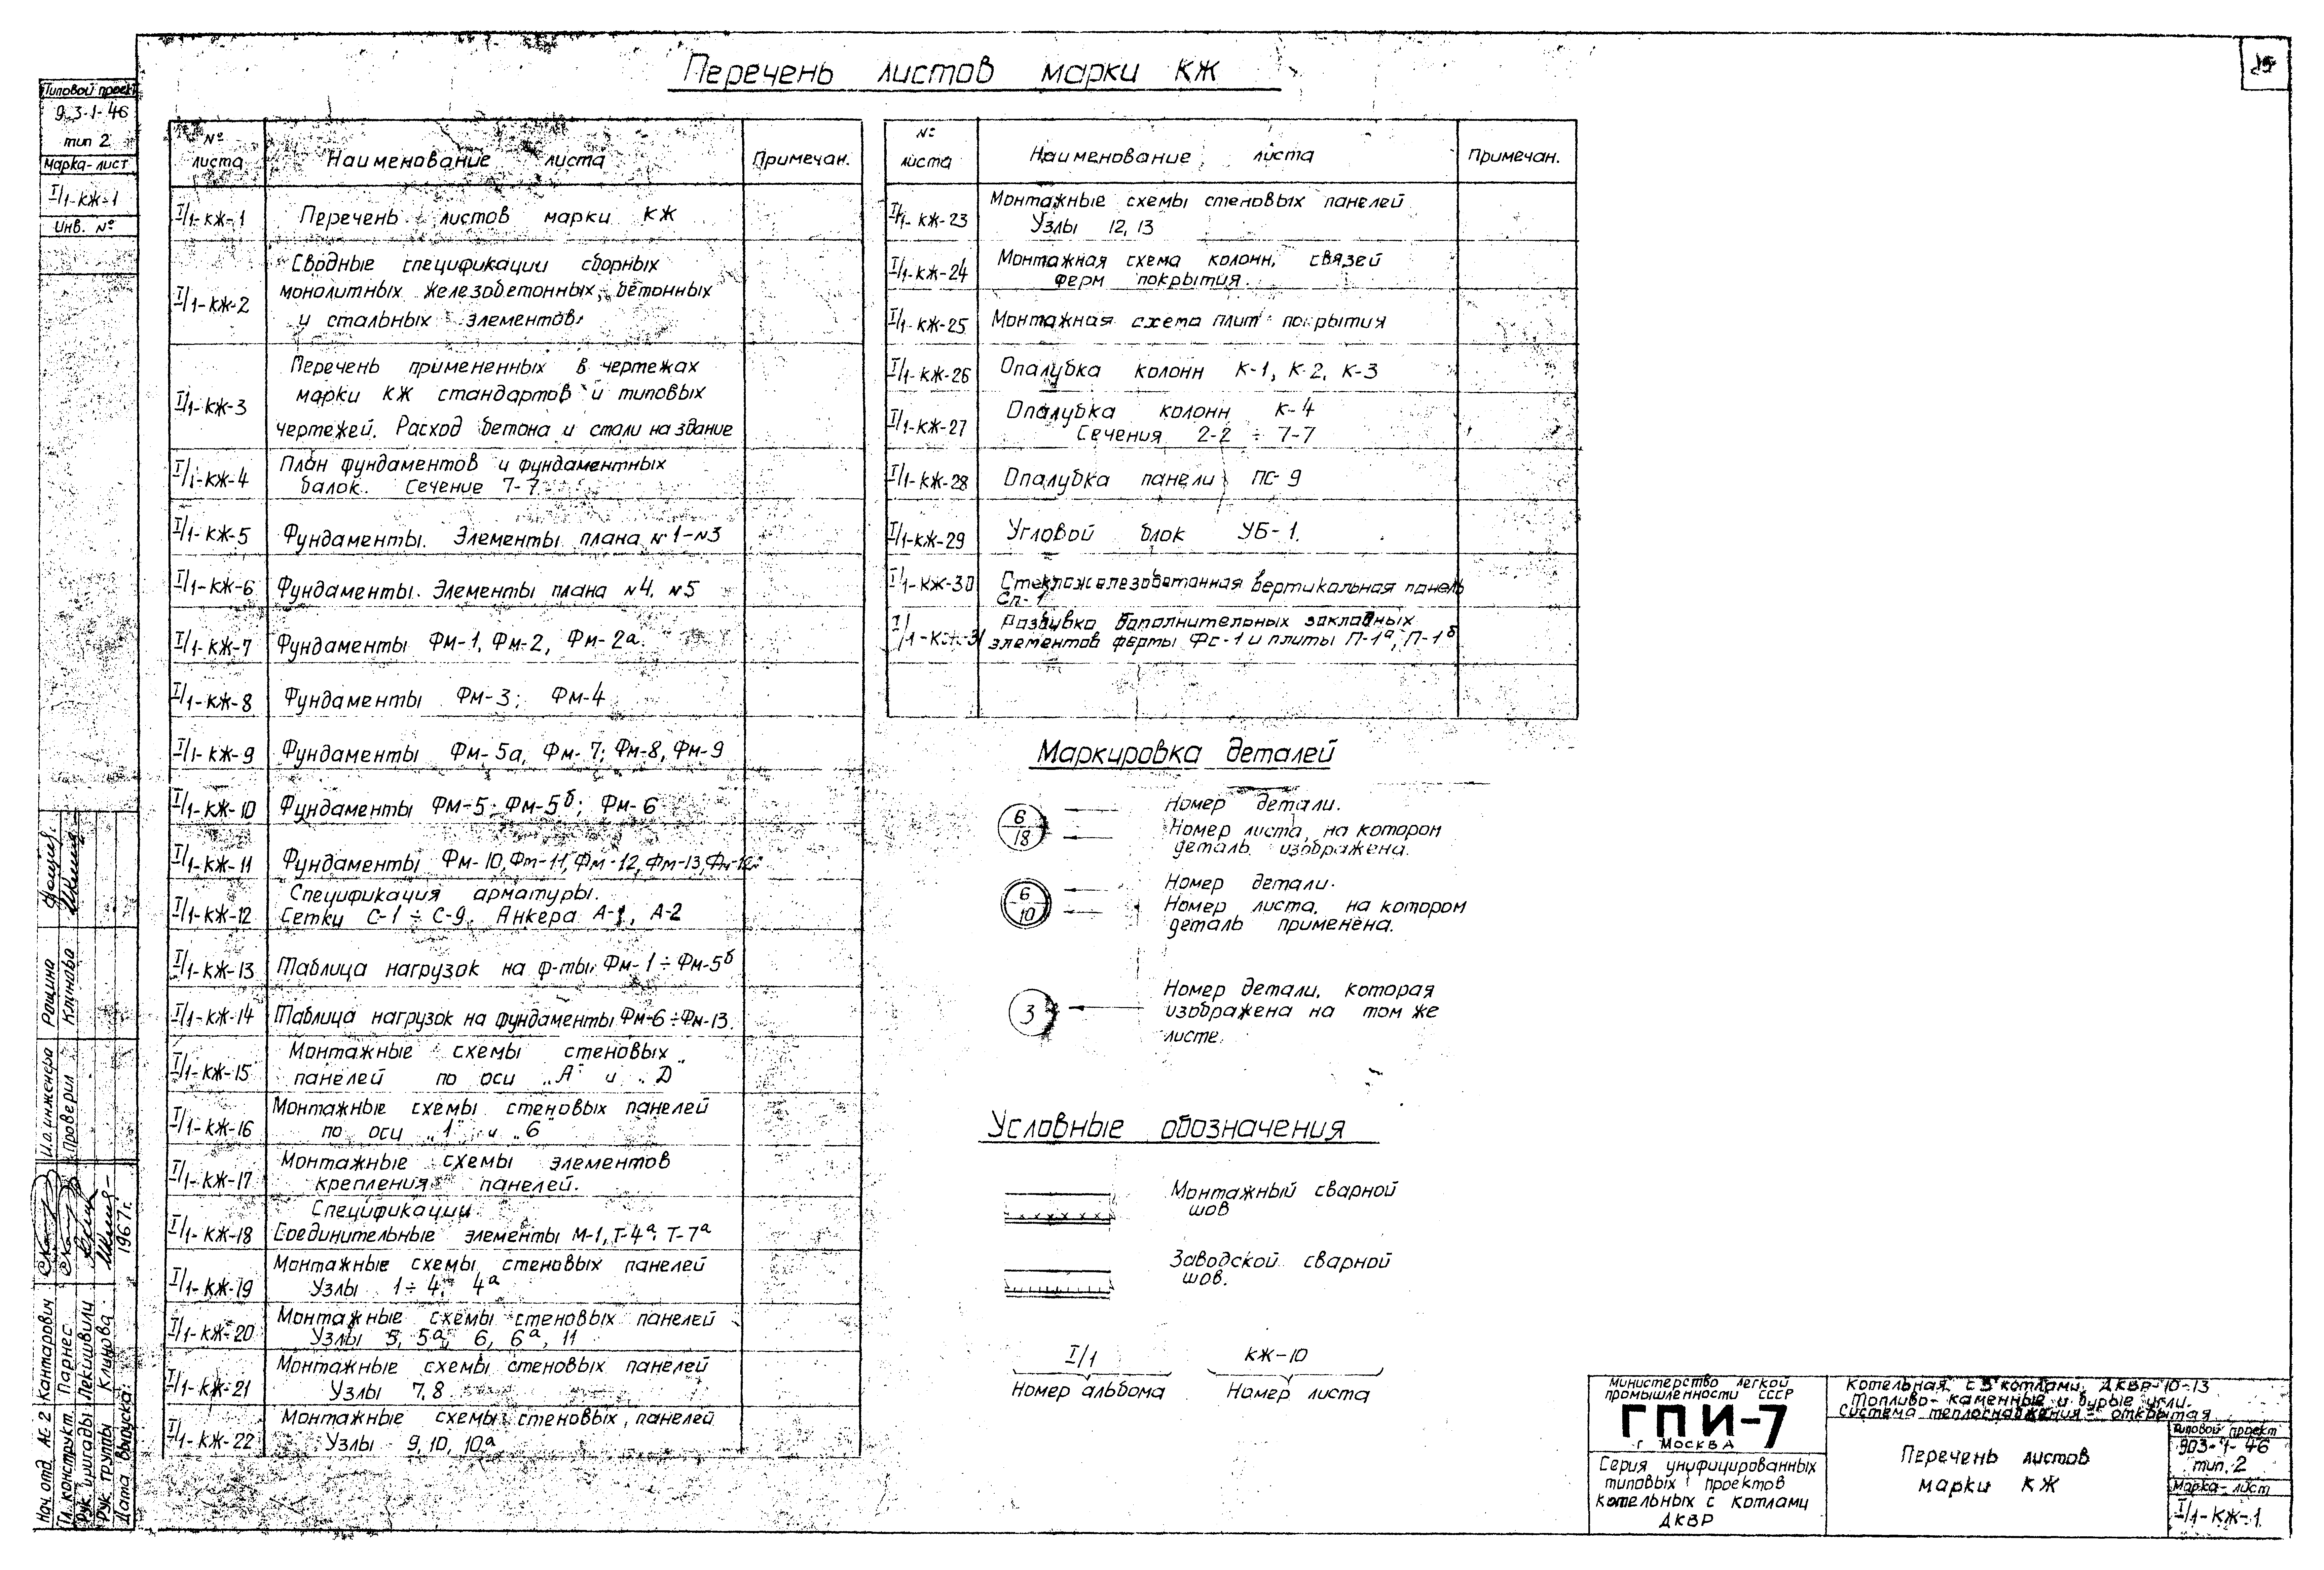 Перечень листов марки КЖ
Типовой проект
903-1-46
тип 2
Марка-лист
I/1-КЖ-1
Инв. №
№ листа
Наименование листа
Примечан.
I/1-КЖ-1
Перечень листов марки КЖ
I/1-КЖ-2
Сводные спецификации сборных
монолитных железобетонных, бетонных
и стальных элементов
I/1-КЖ-3
Перечень примененных в чертежах
марки КЖ стандартов и типовых
чертежей. Расход бетона и стали на здание
I/1-КЖ-4
План фундаментов и фундаментных
балок. Сечение 7-7
I/1-КЖ-5
Фундаменты. Элементы плана №1-№3
I/1-КЖ-6
Фундаменты. Элементы плана №4, №5
I/1-КЖ-7
Фундаменты Фм-1, Фм-2, Фм-2а.
I/1-КЖ-8
Фундаменты Фм-3; Фм-4
I/1-КЖ-9
Фундаменты Фм-5а, Фм-7; Фм-8, Фм-9
I/1-КЖ-10
Фундаменты Фм-5; Фм-5б; Фм-6
I/1-КЖ-11
Фундаменты Фм-10, Фм-11, Фм-12, Фм-13,
I/1-КЖ-12
Спецификация арматуры.
Сетки С-1 ÷ С-9. Анкера А-1, А-2
I/1-КЖ-13
Таблица нагрузок на ф-ты Фм-1 ÷ Фм-5б
I/1-КЖ-14
Таблица нагрузок на фундаменты Фм-6 ÷ Фм-13.
I/1-КЖ-15
Монтажные схемы стеновых
панелей по оси „А" и „Д"
I/1-КЖ-16
Монтажные схемы стеновых панелей
по оси „1" и „6"
I/1-КЖ-17
Монтажные схемы элементов
крепления панелей.
I/1-КЖ-18
Спецификации
Соединительные элементы М-1, Т-4а; Т-7а
I/1-КЖ-19
Монтажные схемы стеновых панелей
Узлы 1 ÷ 4, 4а
I/1-КЖ-20
Монтажные схемы стеновых панелей
Узлы 5, 5а, 6, 6а, 11
I/1-КЖ-21
Монтажные схемы стеновых панелей
Узлы 7, 8
I/1-КЖ-22
Монтажные схемы стеновых панелей
Узлы 9, 10, 10а
№ листа
Наименование листа
Примечан.
I/1-КЖ-23
Монтажные схемы стеновых панелей
Узлы 12, 13
I/1-КЖ-24
Монтажная схема колонн, связей
ферм покрытия.
I/1-КЖ-25
Монтажная схема плит покрытия
I/1-КЖ-26
Опалубка колонн К-1, К-2, К-3
I/1-КЖ-27
Опалубка колонн К-4
Сечения 2-2 ÷ 7-7
I/1-КЖ-28
Опалубка панели ПС-9
I/1-КЖ-29
Угловой блок УБ-1.
I/1-КЖ-30
Стекложелезобетонная вертикальная панель
Сп-1
I/1-КЖ-31
Разбивка дополнительных закладных
элементов фермы Фс-1 и плиты П-1а, П-1б
Маркировка деталей
6
18
Номер детали.
Номер листа, на котором
деталь изображена.
6
10
Номер детали.
Номер листа, на котором
деталь применена.
3
Номер детали, которая
изображена на том же
листе.
Условные обозначения
Монтажный сварной
шов
Заводской сварной
шов.
I/1
КЖ-10
Номер альбома
Номер листа
И.о. инженера Рощина
Проверил Клинова
Нач. отд. АС-2 Кантарович
Гл. конструкт. Парнес
Рук. бригады Лекишвили
Рук. группы Клинова
Дата выпуска: 1967г.
Министерство легкой
промышленности СССР
ГПИ-7
г Москва
Серия унифицированных
типовых проектов
котельных с котлами
ДКВР
Котельная с 3 котлами ДКВР-10-13
Топливо-каменные и бурые угли.
Система теплоснабжения - открытая
Перечень листов
марки КЖ
Типовой проект
903-1-46
тип 2
Марка-лист
I/1-КЖ-1